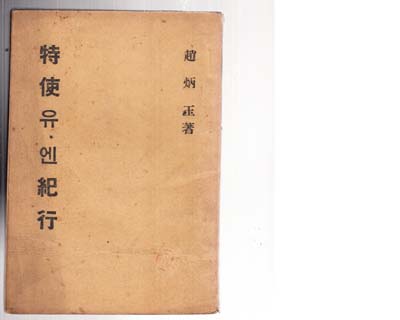 特使유·엔紀行
趙炳玉著